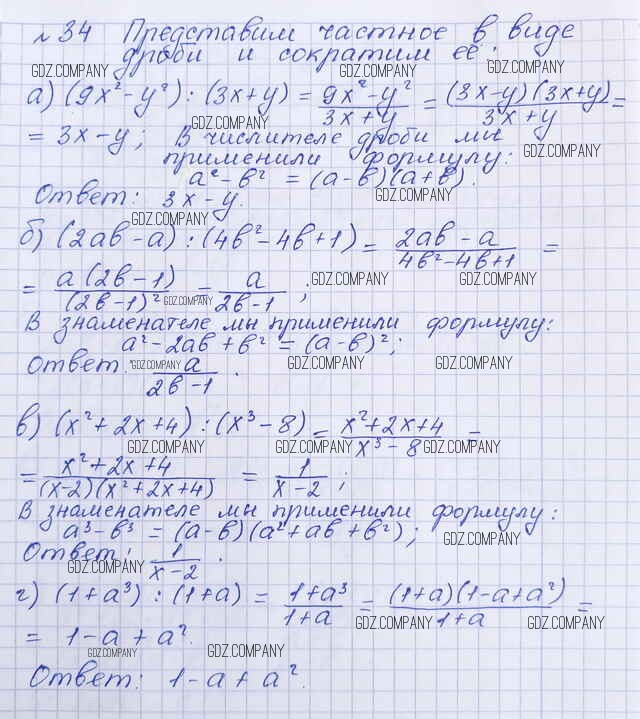 № 34 Представим частное в виде
дроби и сократим её:
GDZ.COMPANY GDZ.COMPANY GDZ.COMPANY
а) (9x² - y²) : (3x + y) = 9x² - y² / 3x + y = (3x - y)(3x + y) / 3x + y =
GDZ.COMPANY
= 3x - y; В числителе дроби мы
применили формулу: GDZ.COMPANY
a² - в² = (a - в)(a + в).
Ответ: 3x - y. GDZ.COMPANY
GDZ.COMPANY
б) (2aв - a) : (4в² - 4в + 1) = 2aв - a / 4в² - 4в + 1 =
= a(2в - 1) / (2в - 1)² = a / 2в - 1 ; GDZ.COMPANY GDZ.COMPANY
GDZ.COMPANY
В знаменателе мы применили формулу:
a² - 2aв + в² = (a - в)²;
Ответ: a / 2в - 1 . GDZ.COMPANY GDZ.COMPANY GDZ.COMPANY
в) (x² + 2x + 4) : (x³ - 8) = x² + 2x + 4 / x³ - 8 =
GDZ.COMPANY GDZ.COMPANY GDZ.COMPANY
= x² + 2x + 4 / (x - 2)(x² + 2x + 4) = 1 / x - 2 ;
В знаменателе мы применили формулу:
a³ - в³ = (a - в)(a² + aв + в²); GDZ.COMPANY
Ответ: 1 / x - 2 .
GDZ.COMPANY
г) (1 + a³) : (1 + a) = 1 + a³ / 1 + a = (1 + a)(1 - a + a²) / 1 + a =
GDZ.COMPANY GDZ.COMPANY
= 1 - a + a².
GDZ.COMPANY GDZ.COMPANY
Ответ: 1 - a + a².